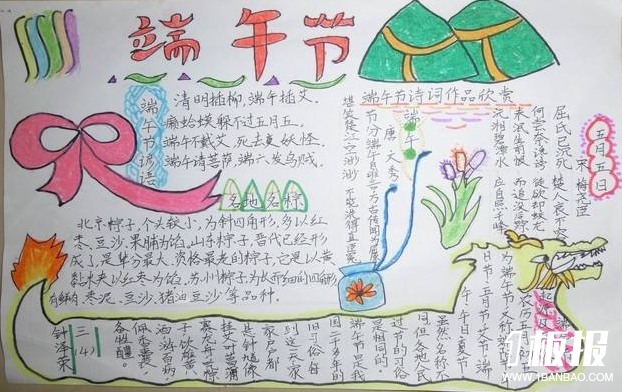 端午节
端午节谚语
清明插柳,端午插艾。
癞蛤蟆躲不过五月五。
端午不戴艾,死去变妖怪。
端午请菩萨,端六发乌贼。
各地名粽
北京粽子,个头较小,为斜四角形,多以红
枣、豆沙、果脯为馅。山东粽子,晋代已经形
成了,是单分最大、资格最老的粽子,它是以黄
黏米夹以红枣为馅。苏州粽子,为长而细的四角形
有鲜肉、枣泥、豆沙、猪油豆沙等品种。
端午节诗词作品欣赏
端午
唐·文秀
节分端午自谁言
万古传闻为屈
堪笑楚江空渺渺
不能洗得直臣冤
五月五日
宋 梅尧臣
屈氏已沉死
楚人哀不容
何尝奈谗谤
徒欲却蛟龙
未泯生前恨
而追没后踪
沅湘碧潭水
应自照千峰
农历五月
为端午节,又称
日节、五月节、艾节、端
午、午日、夏节。
虽然名称不
同,但各地人民
过节的习俗
是相同的。
端午节是我
国二千多年的
旧习俗,每
到这一天,家
家户户都
悬钟馗像,
挂艾叶菖蒲
赛龙舟,吃粽
子,饮雄黄
酒,游百病,
佩香囊,
备牲醴。
三(4)
钟泽荣
板报
WWW.1BANBAO.COM